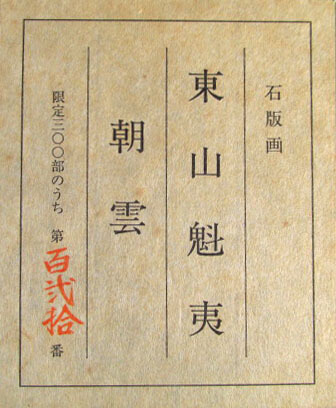 石版画
東山魁夷
朝雲
限定三〇〇部のうち 第百弐拾番